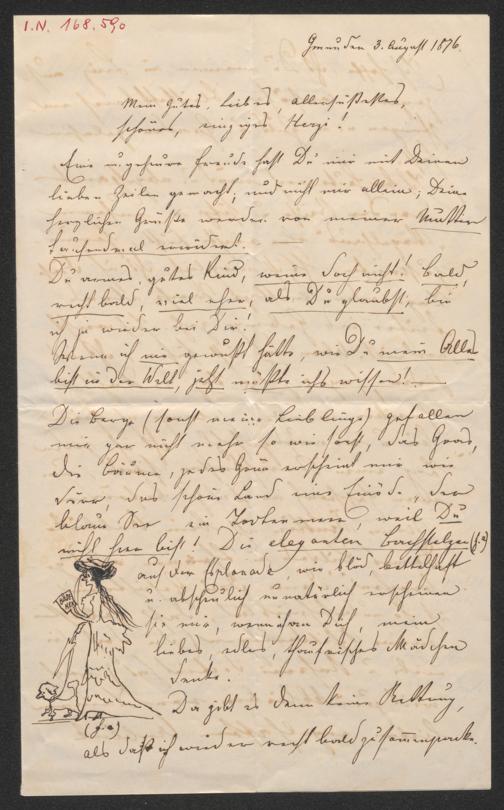 I.N. 168.590
Gmunden 3. August 1876.
Mein gutes, liebes, allersüßestes,
schönes, einziges Herzi!
Eine ungeheure Freude hast Du mir mit Deinen
lieben Zeilen gemacht; und nicht mir allein; Deine
herzlichen Grüße werden von meiner Mutter
tausendmal erwidert.
Du armes, gutes Kind, weine doch nicht! Bald,
recht bald, viel eher, als Du glaubst, bin
ich ja wieder bei Dir!
Wenn ich nie gewußt hätte, wie Du mein Alles
bist in der Welt, jetzt müßte ichs wissen! —
Die Berge (sonst meine Lieblinge) gefallen
mir gar nicht mehr so wie sonst, das Gras,
die Bäume, jedes Grün erscheint mir wie
dürr, das schöne Land eine Einöde, der
blaue See ein Todtenmeer, weil Du
nicht hier bist! Die eleganten Bachstelzen
auf der Esplanade, wie blöd, bettelhaft
u. abscheulich unnatürlich erscheinen
sie mir, wenn ich an Dich, mein
liebes, edles, thaufrisches Mädchen
denke.
Da gibt es denn keine Rettung,
als daß ich wieder recht bald zusammenpacke.